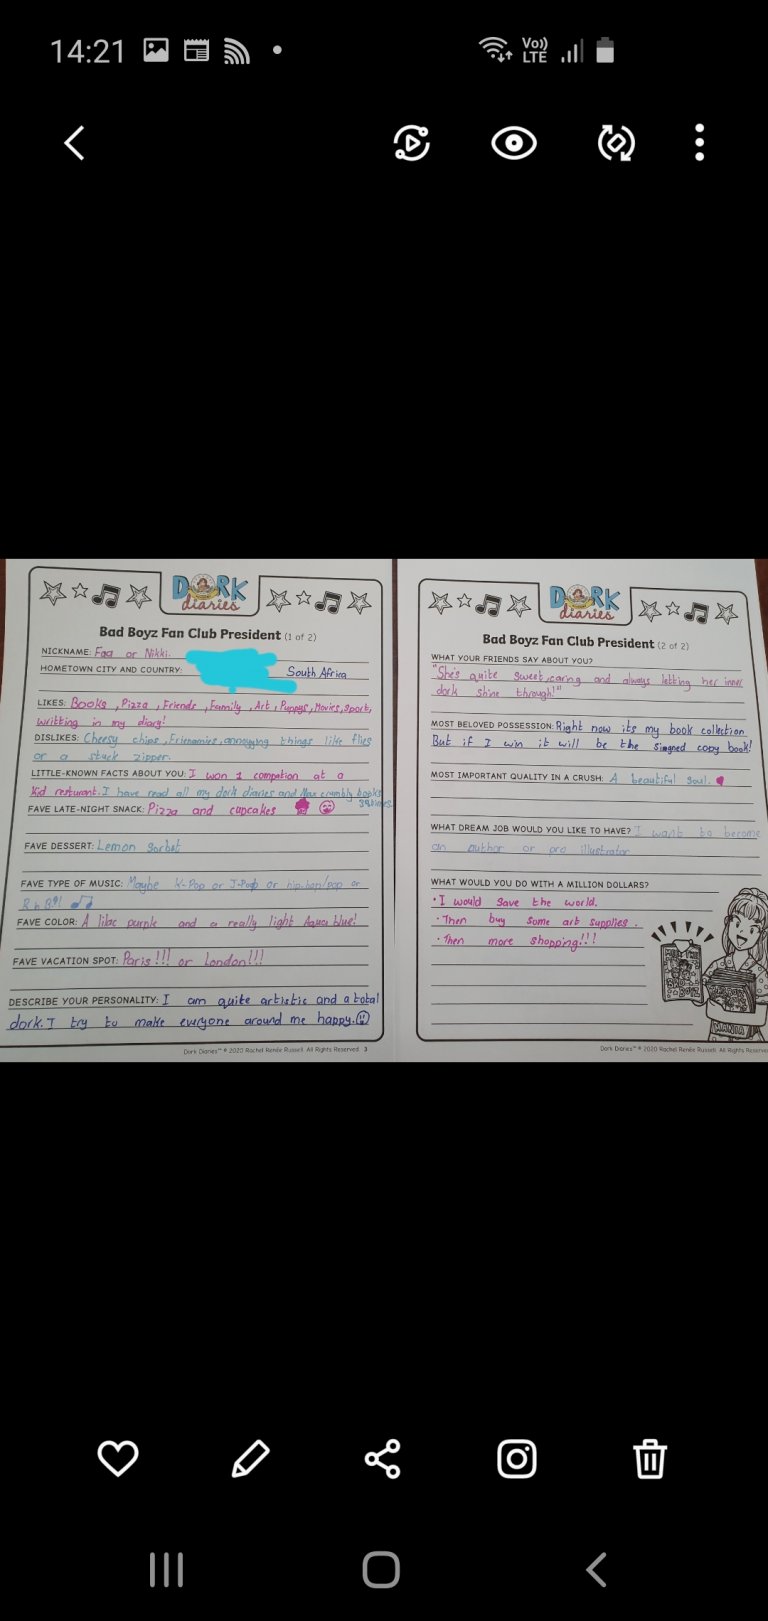 14:21
Vo)) LTE
DORK diaries
Bad Boyz Fan Club President (1 of 2)
NICKNAME: or Nikki.
HOMETOWN CITY AND COUNTRY: South Africa
LIKES: Books, Pizza, Friends, Family, Art, Puppys, Movies, Sport,
writting in my diary!
DISLIKES: Cheesy chips, Frienamies, annoying things like flies
or a stuck zipper.
LITTLE-KNOWN FACTS ABOUT YOU: I won 1 compation at a
kid resturant. I have read all my dork diaries and Max crumbly books
FAVE LATE-NIGHT SNACK: Pizza and cupcakes
FAVE DESSERT: Lemon Sorbet
FAVE TYPE OF MUSIC: Maybe K-Pop or J-Pop or hip-hop/pop or
FAVE COLOR: A lilac purple and a really light Aqua blue!
FAVE VACATION SPOT: Paris!!! or London!!!
DESCRIBE YOUR PERSONALITY: I am quite artistic and a total
dork. I try to make everyone around me happy.
Dork Diaries™ © 2020 Rachel Renée Russell. All Rights Reserved. 3
DORK diaries
Bad Boyz Fan Club President (2 of 2)
WHAT YOUR FRIENDS SAY ABOUT YOU?
"She's quite sweet, caring and always letting her inner
dork shine through!"
MOST BELOVED POSSESSION: Right now its my book collection
But if I win it will be the signed copy book!
MOST IMPORTANT QUALITY IN A CRUSH: A beautiful soul.
WHAT DREAM JOB WOULD YOU LIKE TO HAVE? I want to become
an author or pro illustrator
WHAT WOULD YOU DO WITH A MILLION DOLLARS?
• I would save the world.
• Then buy some art supplies.
• Then more shopping!!!
Dork Diaries™ © 2020 Rachel Renée Russell. All Rights Reserve